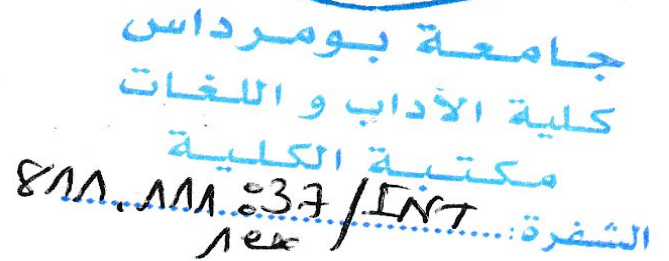 جامعة بومرداس
كلية الآداب و اللغات
مكتبة الكلية
الشفرة:.....811.111:37/INT
1ex